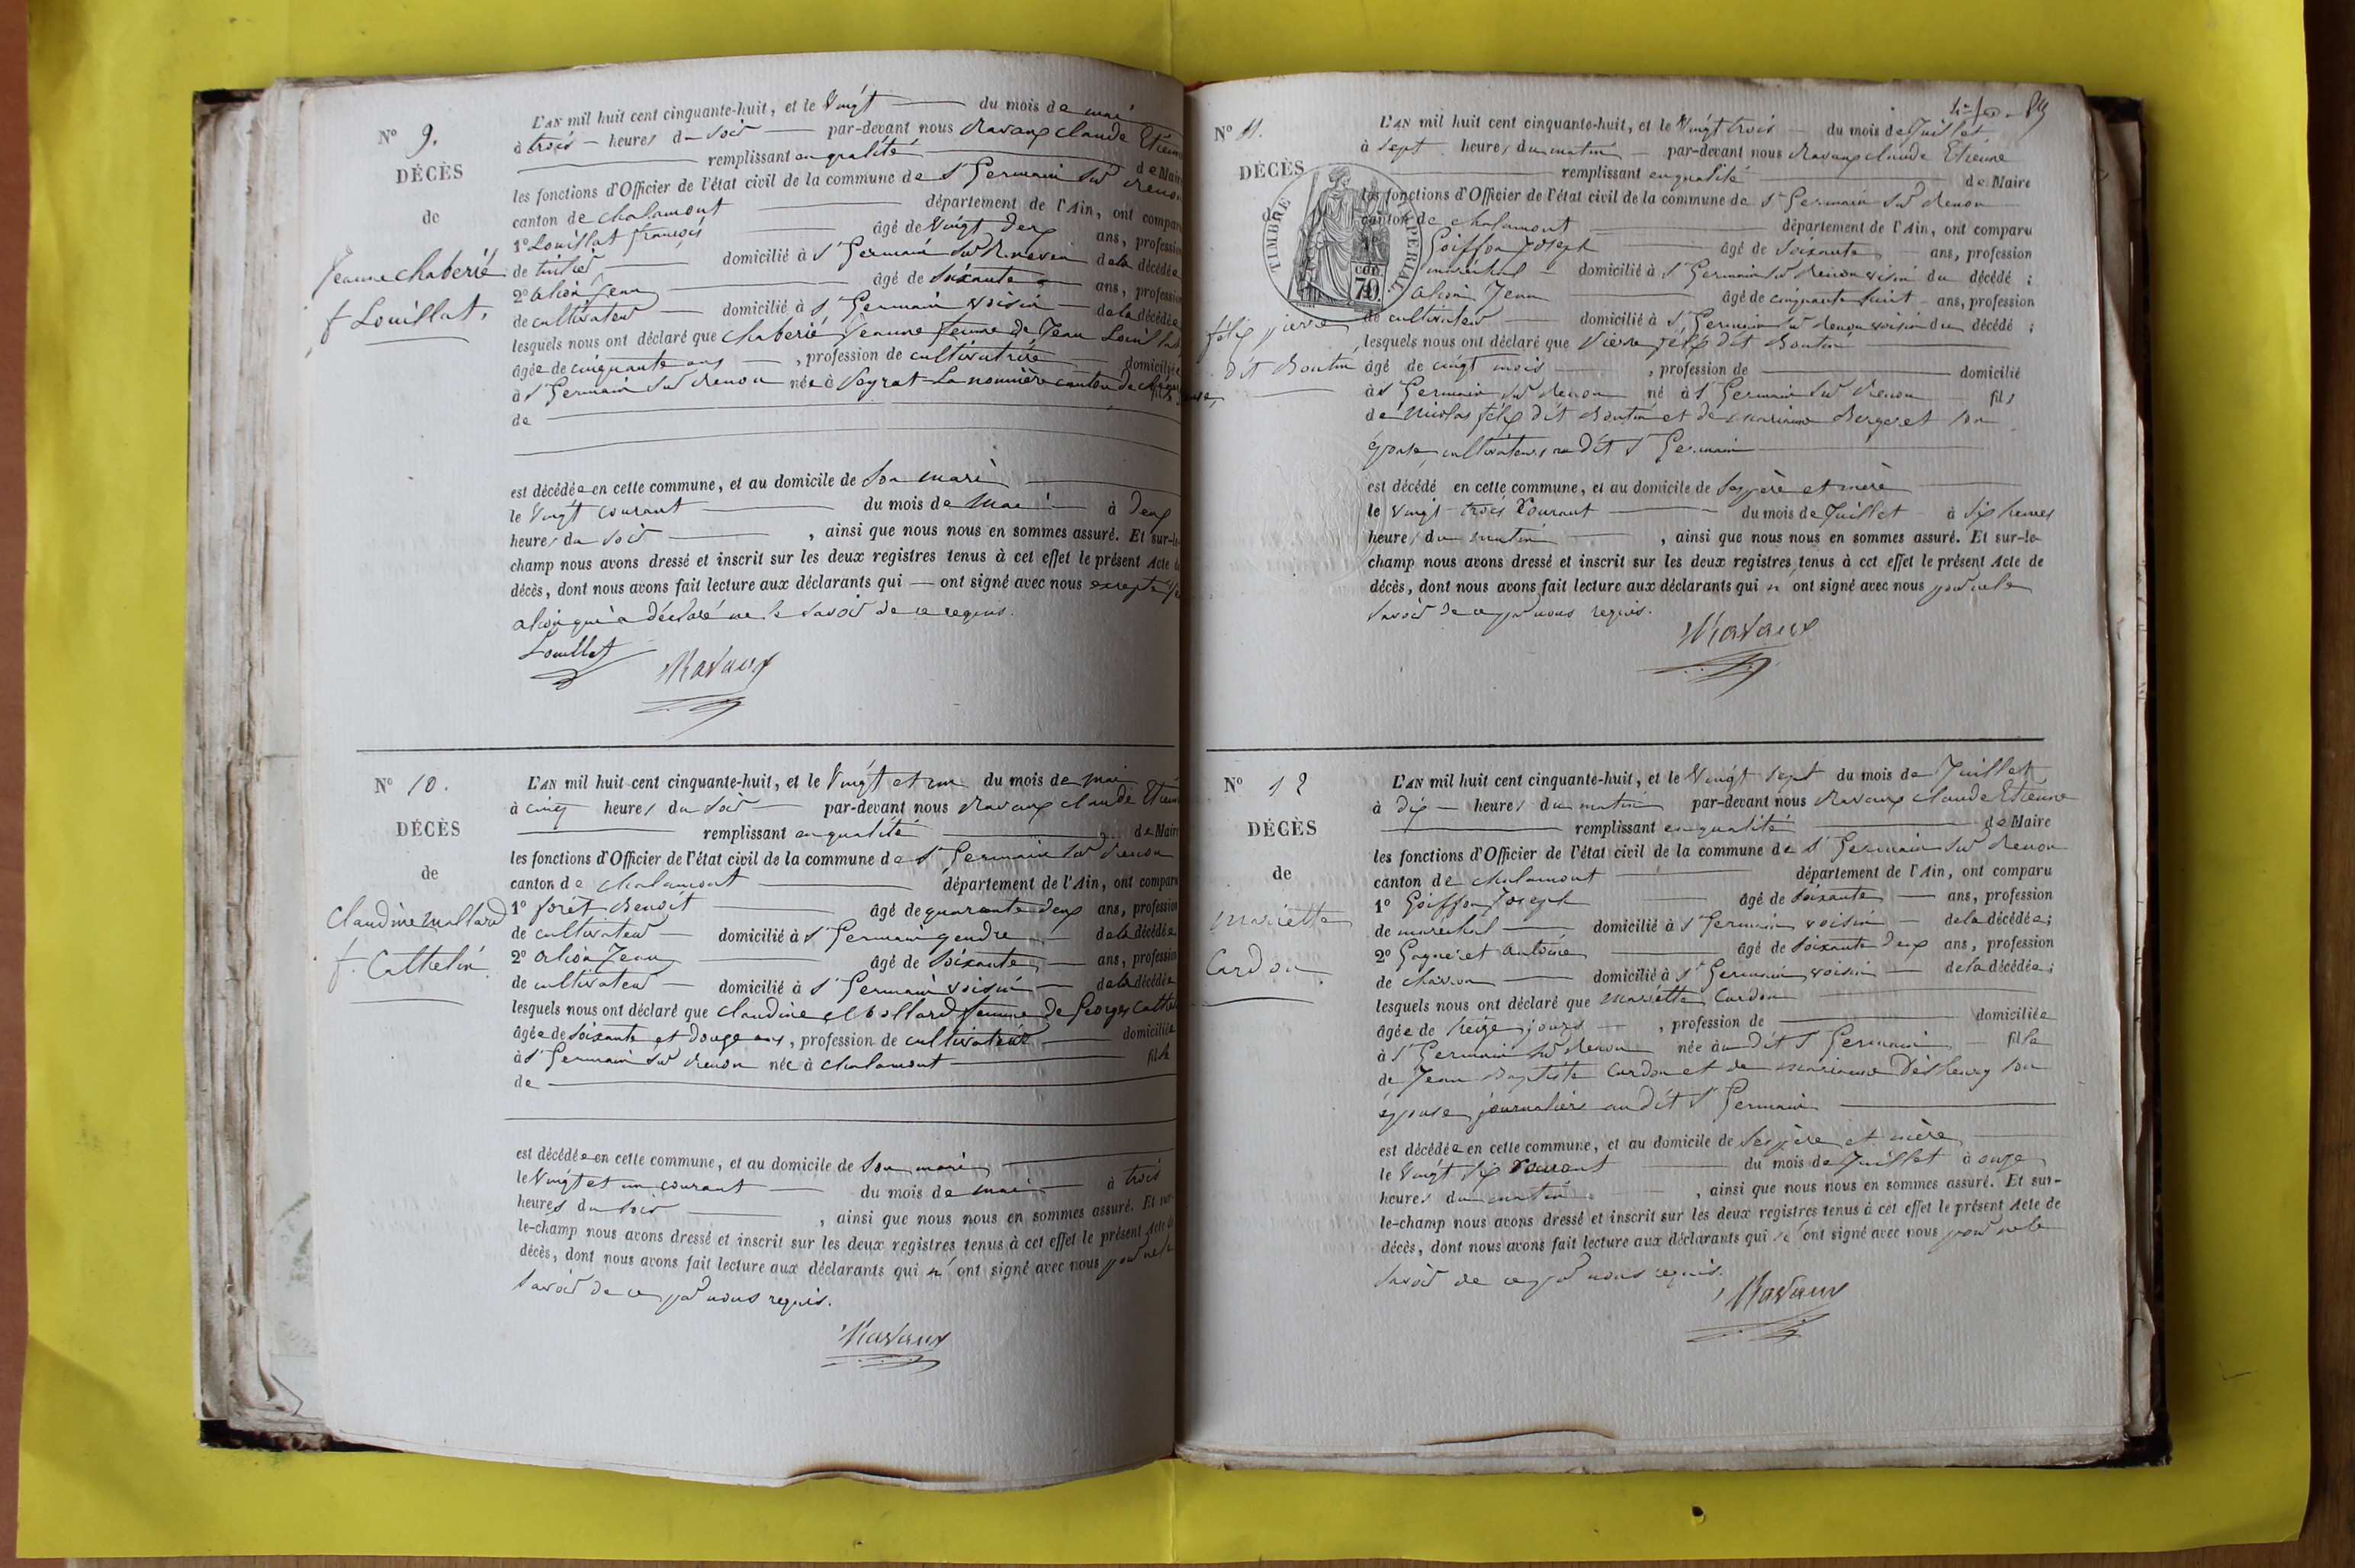 N° 9.
DÉCÈS
de
Jeanne chaberié
f. Louillat,
L'AN mil huit cent cinquante-huit, et le Vingt du mois de mai
à trois heures du soir par-devant nous Ravaux claude Etienne
remplissant en qualité de Maire
les fonctions d'Officier de l'état civil de la commune de St Germain sur Renon
canton de chalamont département de l'Ain, ont comparu
1° Louillat françois âgé de Vingt deux ans, profession
de domicilié à St Germain sur Renon de la décédée
2° Jean âgé de soixante ans, profession
de cultivateur domicilié à St Germain voisin de la décédée
lesquels nous ont déclaré que chaberié Jeanne femme de Jean Louillat
âgée de cinquante ans, profession de cultivatrice domiciliée
à St Germain sur Renon née à canton de
de
est décédée en cette commune, et au domicile de son mari
le Vingt courant du mois de mai à deux
heures du soir, ainsi que nous nous en sommes assuré. Et sur-le-
champ nous avons dressé et inscrit sur les deux registres tenus à cet effet le présent Acte de
décès, dont nous avons fait lecture aux déclarants qui ont signé avec nous excepté
qui a déclaré ne le savoir de ce requis.
Louillat Ravaux
N° 10.
DÉCÈS
de
Claudine mallard
f. Cathelin
L'AN mil huit cent cinquante-huit, et le Vingt et un du mois de mai
à cinq heures du soir par-devant nous Ravaux claude Etienne
remplissant en qualité de Maire
les fonctions d'Officier de l'état civil de la commune de St Germain sur Renon
canton de chalamont département de l'Ain, ont comparu
1° forêt Benoit âgé de quarante deux ans, profession
de cultivateur domicilié à St Germain gendre de la décédée
2° Jean âgé de soixante ans, profession
de cultivateur domicilié à St Germain voisin de la décédée
lesquels nous ont déclaré que claudine Mollard femme de Georges Cathelin
âgée de soixante et douze ans, profession de cultivatrice domiciliée
à St Germain sur Renon née à chalamont fille
de
est décédée en cette commune, et au domicile de son mari
le Vingt et un courant du mois de mai à trois
heures du soir, ainsi que nous nous en sommes assuré. Et sur-
le-champ nous avons dressé et inscrit sur les deux registres tenus à cet effet le présent Acte de
décès, dont nous avons fait lecture aux déclarants qui n'ont signé avec nous pour ne le
savoir de ce par nous requis.
Ravaux
N° 11.
DÉCÈS
TIMBRE IMPÉRIAL
70
félix pierre
dit Boutin
L'AN mil huit cent cinquante-huit, et le Vingt trois du mois de Juillet
à sept heures du matin par-devant nous Ravaux claude Etienne
remplissant en qualité de Maire
les fonctions d'Officier de l'état civil de la commune de St Germain sur Renon
canton de chalamont département de l'Ain, ont comparu
Goiffon Joseph âgé de soixante ans, profession
maréchal domicilié à St Germain sur Renon voisin du décédé ;
Jean âgé de cinquante huit ans, profession
de cultivateur domicilié à St Germain sur Renon voisin du décédé ;
lesquels nous ont déclaré que Pierre félix dit Boutin
âgé de vingt mois, profession de domicilié
à St Germain sur Renon né à St Germain sur Renon fils
de Nicolas félix dit Boutin et de mariane Bergeret son
épouse, cultivateurs au dit St Germain
est décédé en cette commune, et au domicile de ses père et mère
le vingt trois courant du mois de Juillet à six heures
heures du matin, ainsi que nous nous en sommes assuré. Et sur-le-
champ nous avons dressé et inscrit sur les deux registres tenus à cet effet le présent Acte de
décès, dont nous avons fait lecture aux déclarants qui n'ont signé avec nous pour ne le
savoir de ce par nous requis.
Ravaux
N° 12
DÉCÈS
de
mariette
Cardon
L'AN mil huit cent cinquante-huit, et le Vingt sept du mois de Juillet
à dix heures du matin par-devant nous Ravaux claude Etienne
remplissant en qualité de Maire
les fonctions d'Officier de l'état civil de la commune de St Germain sur Renon
canton de chalamont département de l'Ain, ont comparu
1° Goiffon Joseph âgé de soixante ans, profession
de marechal domicilié à St Germain voisin de la décédée ;
2° antoine âgé de soixante deux ans, profession
de charron domicilié à St Germain, voisin de la décédée ;
lesquels nous ont déclaré que mariette Cardon
âgée de jours, profession de domiciliée
à St Germain sur Renon née au dit St Germain fille
de Jean Baptiste Cardon et de mariane son
épouse, journaliers au dit St Germain
est décédée en cette commune, et au domicile de ses père et mère
le Vingt six courant du mois de Juillet à onze
heures du matin, ainsi que nous nous en sommes assuré. Et sur-
le-champ nous avons dressé et inscrit sur les deux registres tenus à cet effet le présent Acte de
décès, dont nous avons fait lecture aux déclarants qui n'ont signé avec nous pour ne le
savoir de ce par nous requis.
Ravaux